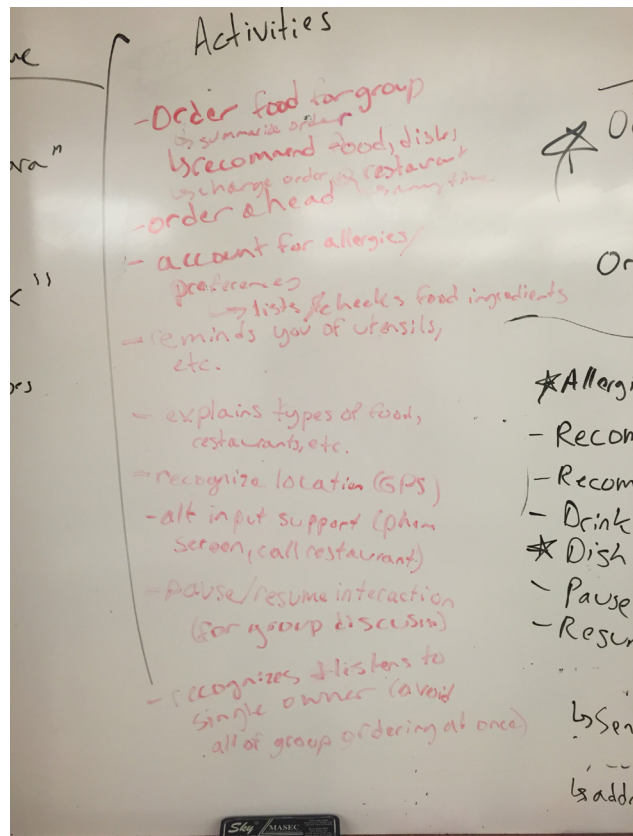 Activities
-Order food for group
↳summarize order
↳recommend food, dish,
restaurant
↳change order
-order ahead
- account for allergies/
preferences
→lists/checks food ingredients
- reminds you of utensils,
etc.
- explains types of food,
restaurants, etc.
-recognize location (GPS)
-alt input support (phon
screen, call restaurant)
-pause/resume interaction
(for group discusin)
-recognizes + listens to
single owner (avoid
all of group ordering at once)
☆ O
Or
☆Allergi
- Recom
- Recom
- Drink
☆ Dish
- Pause
- Resum
↳Sen
↳adda
Sky MASEC